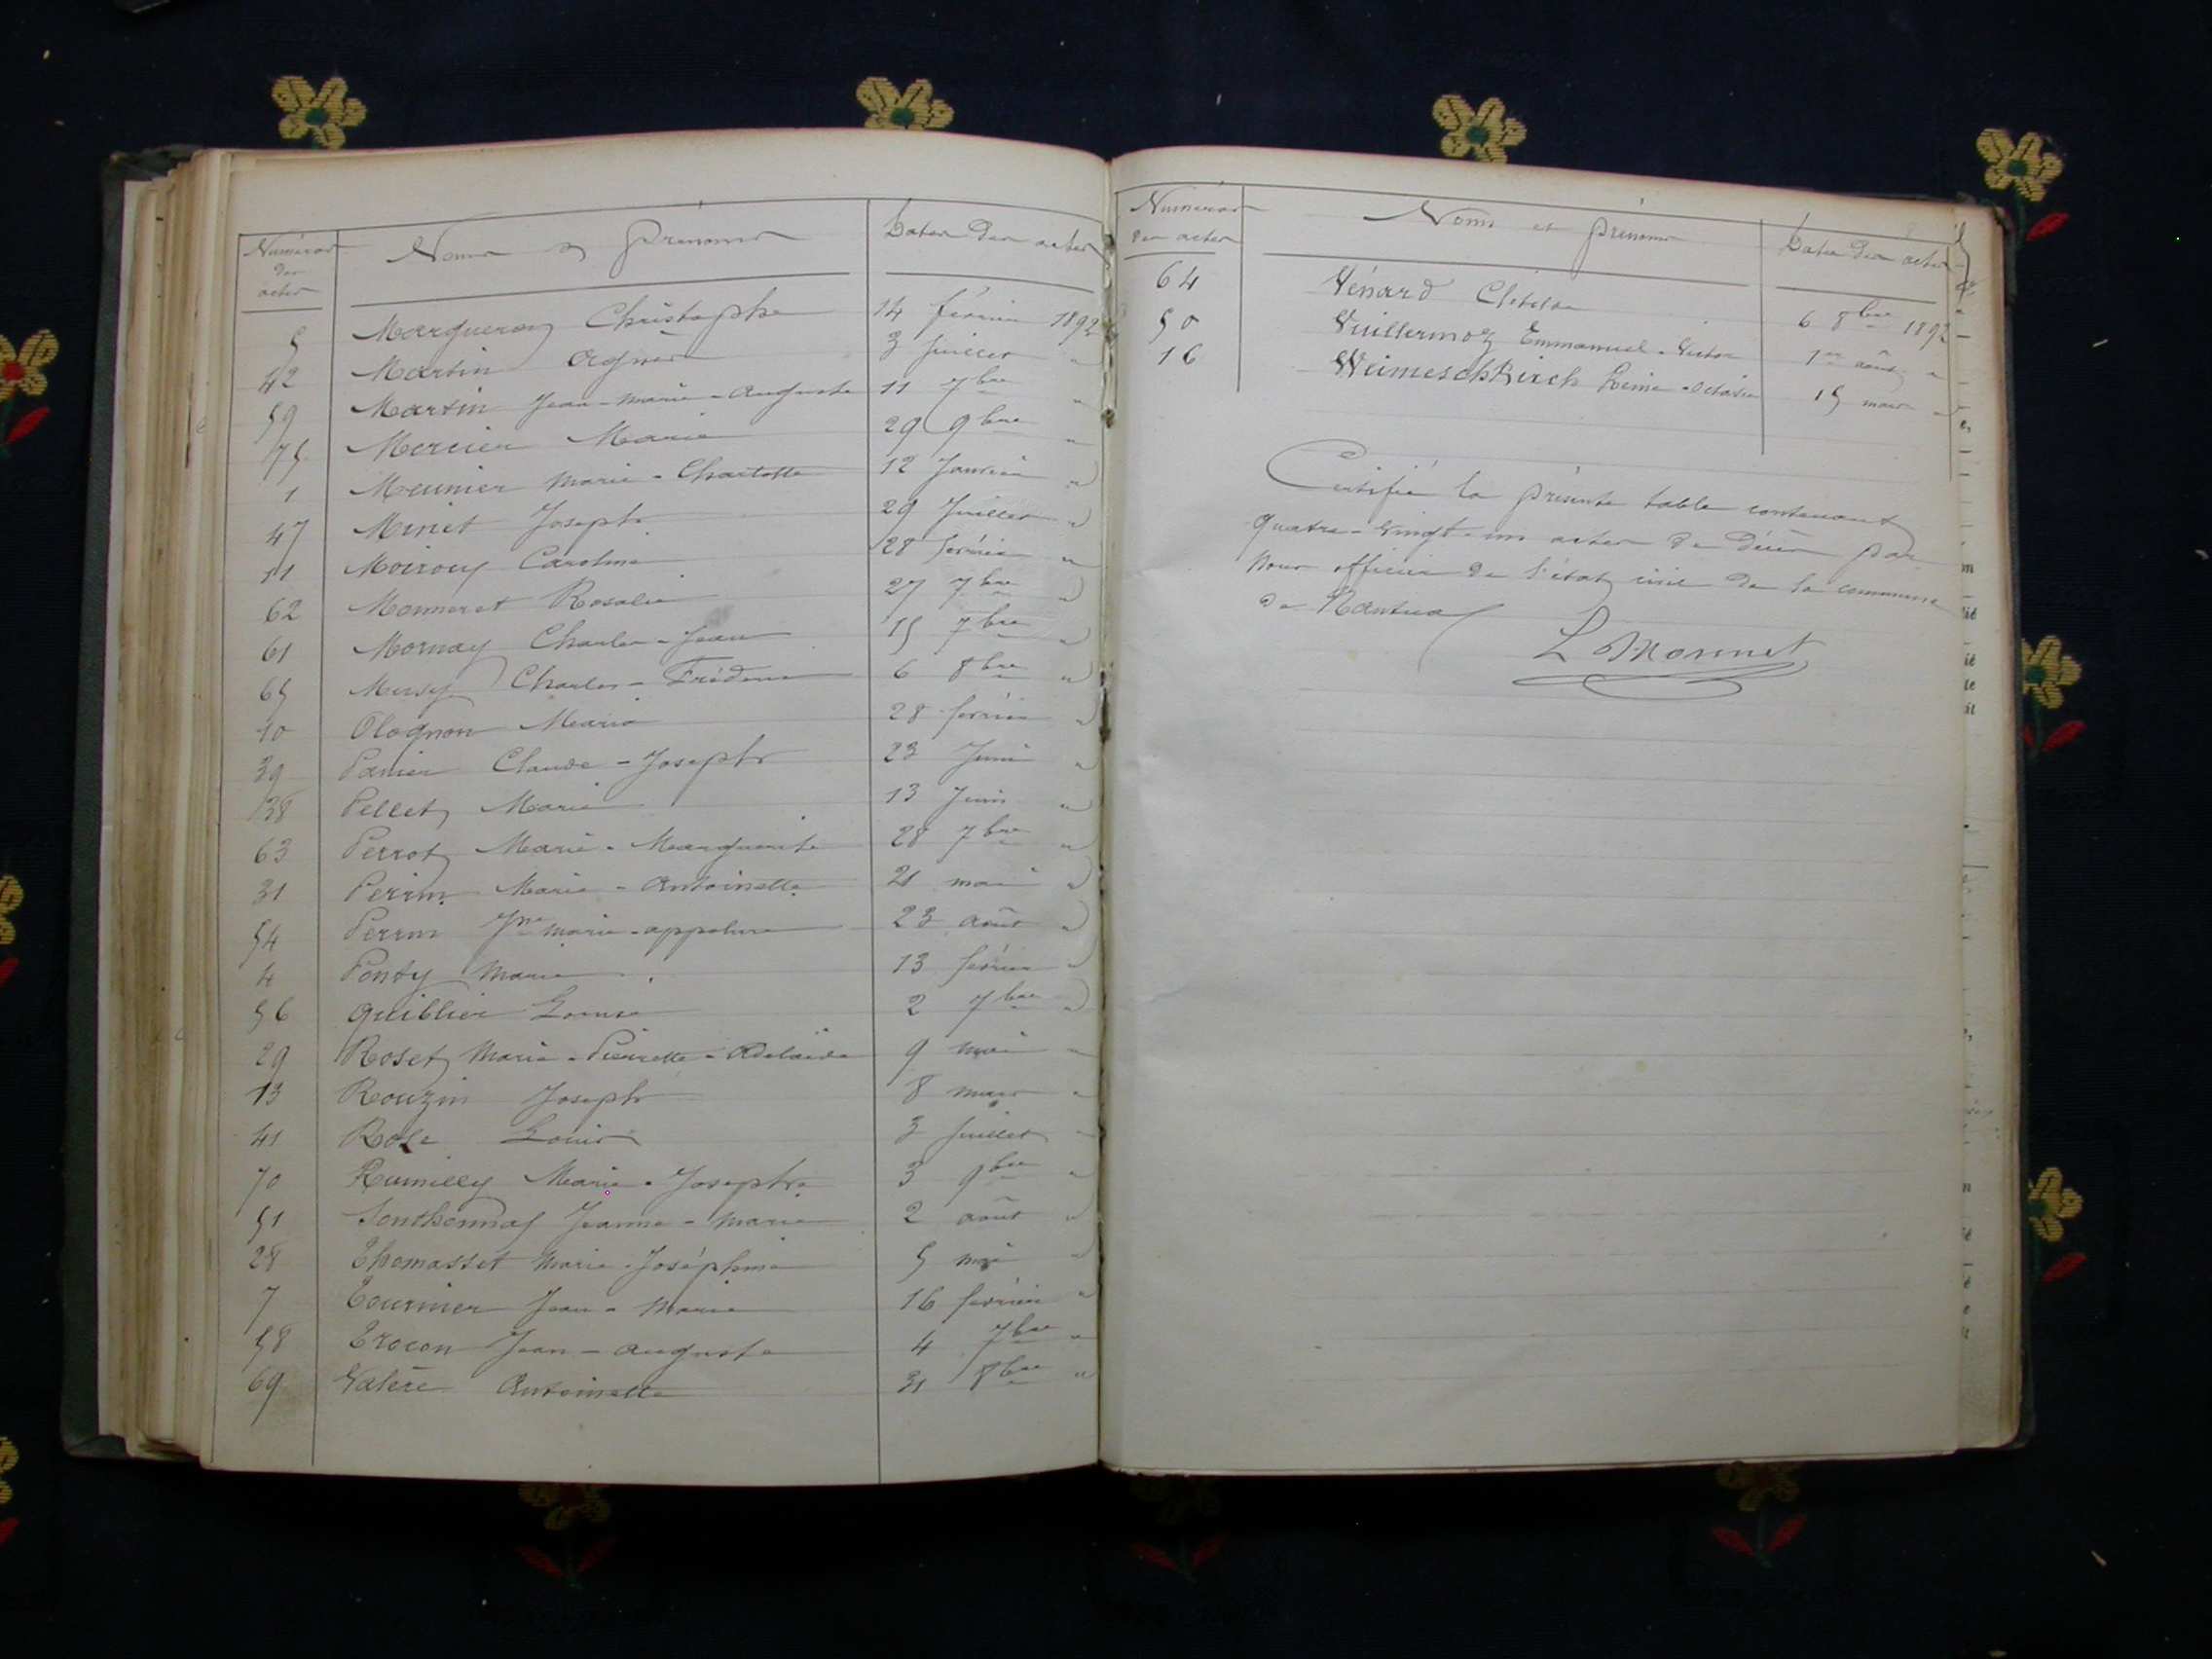 Numéros des actes Noms et Prénoms Dates des actes
5 Margueron Christophe 14 février 1892
42 Martin Agnès 3 juillet "
59 Martin Jean-Marie-Auguste 11 7bre "
75 Mercier Marie 29 9bre "
1 Meunier Marie-Charlotte 12 Janvier "
47 Minet Joseph 29 Juillet "
11 Moiroux Caroline 28 février "
62 Monneret Rosalie 27 7bre "
61 Mornay Charles-Jean 15 7bre "
65 Charles-Frédéric 6 8bre "
10 Olognon Marie 28 février "
39 Panier Claude-Joseph 23 Juin "
38 Pellet Marie 13 Juin "
63 Perrot Marie-Marguerite 28 7bre "
31 Perrin Marie-Antoinette 21 mai "
54 Perrin Jne marie-appoline 23 août "
4 Ponty Marie 13 février "
56 Quiblier Louise 2 7bre "
29 Roset Marie-Pierrette-Adélaïde 9 mai "
13 Rouzin Joseph 8 mars "
41 Role Louis 3 juillet "
70 Rumilly Marie-Josephe 3 9bre "
51 Sonthonnax Jeanne-Marie 2 août "
28 Thomasset Marie-Joséphine 5 mai "
7 Tournier Jean-Marie 16 février "
58 Trocon Jean-Auguste 4 7bre "
69 Valère Antoinette 31 8bre "
Numéros des actes Noms et Prénoms Dates des actes
64 Vénard Clotilde 6 8bre 1892
50 Vuillermoz Emmanuel-Victor 1er août "
16 Weimeschkirch Reine-Octavie 15 mars "
Certifié la présente table contenant
quatre-vingt-un actes de décès par
Nous officier de l'état civil de la commune
de Nantua
L Monnet